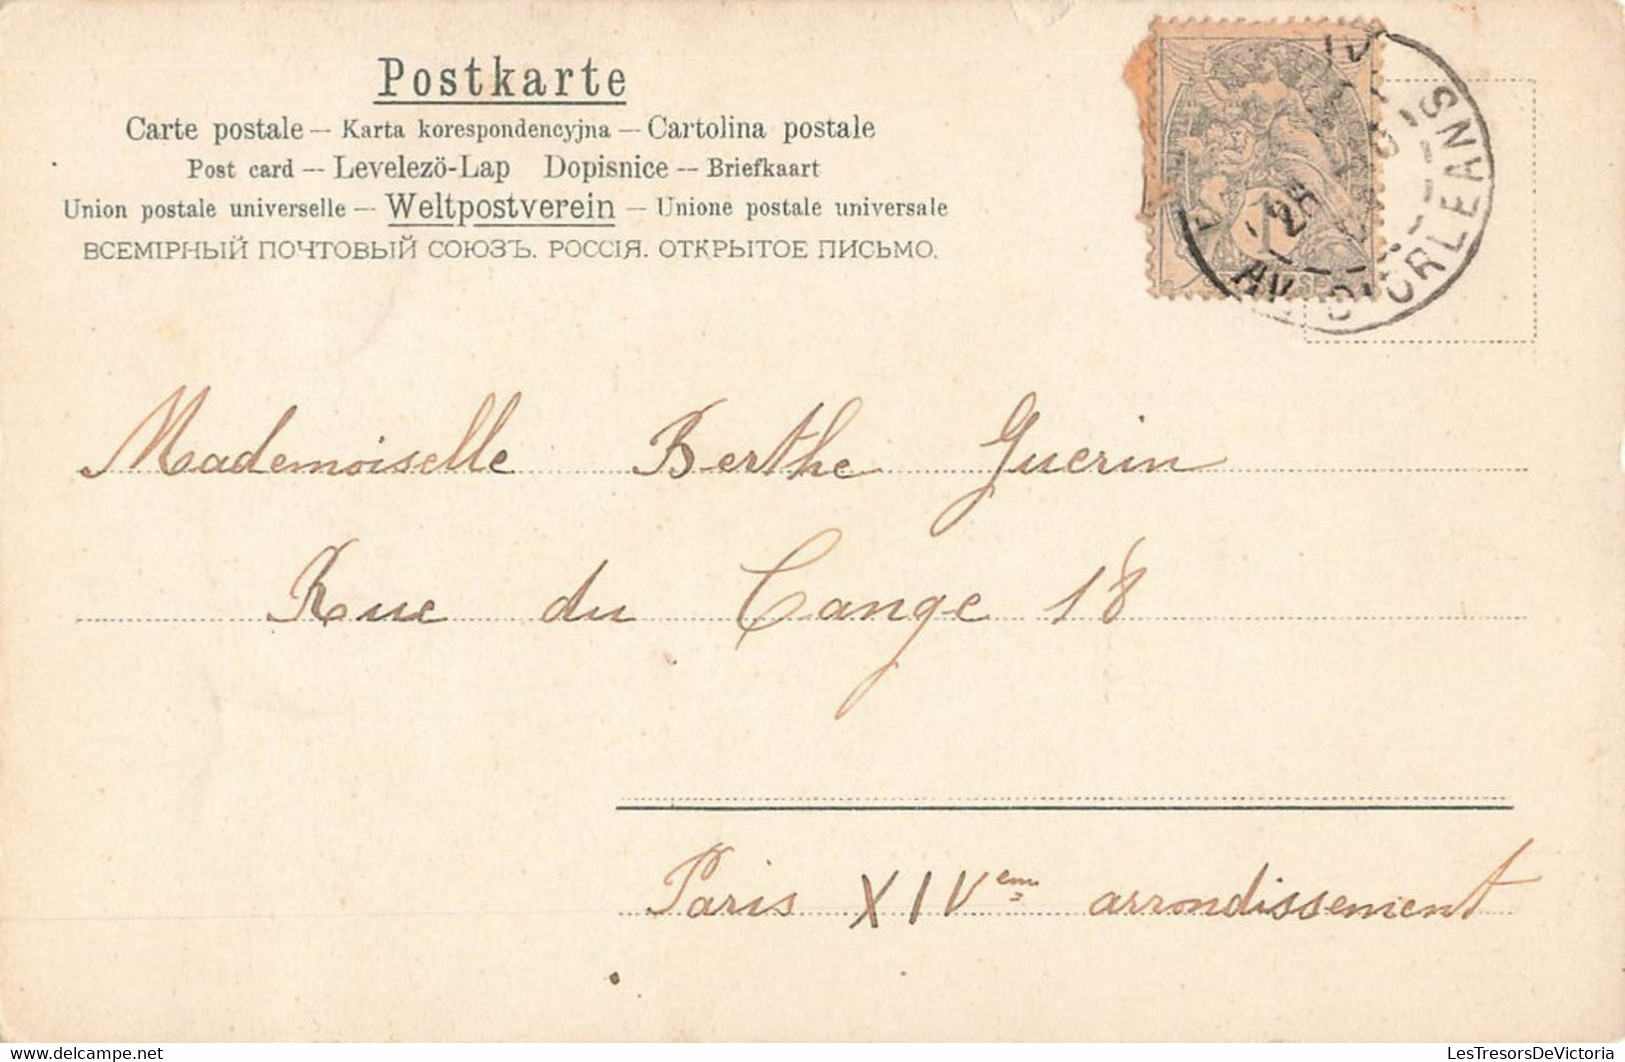 Postkarte
Carte postale — Karta korespondencyjna — Cartolina postale
Post card — Levelezö-Lap Dopisnice — Briefkaart
Union postale universelle — Weltpostverein — Unione postale universale
ВСЕМІРНЫЙ ПОЧТОВЫЙ СОЮЗЪ. РОССІЯ. ОТКРЫТОЕ ПИСЬМО.
AV. D'ORLEANS
Mademoiselle Berthe Guerin
Rue du Cange 18
Paris XIVeme arrondissement
LesTresorsDeVictoria